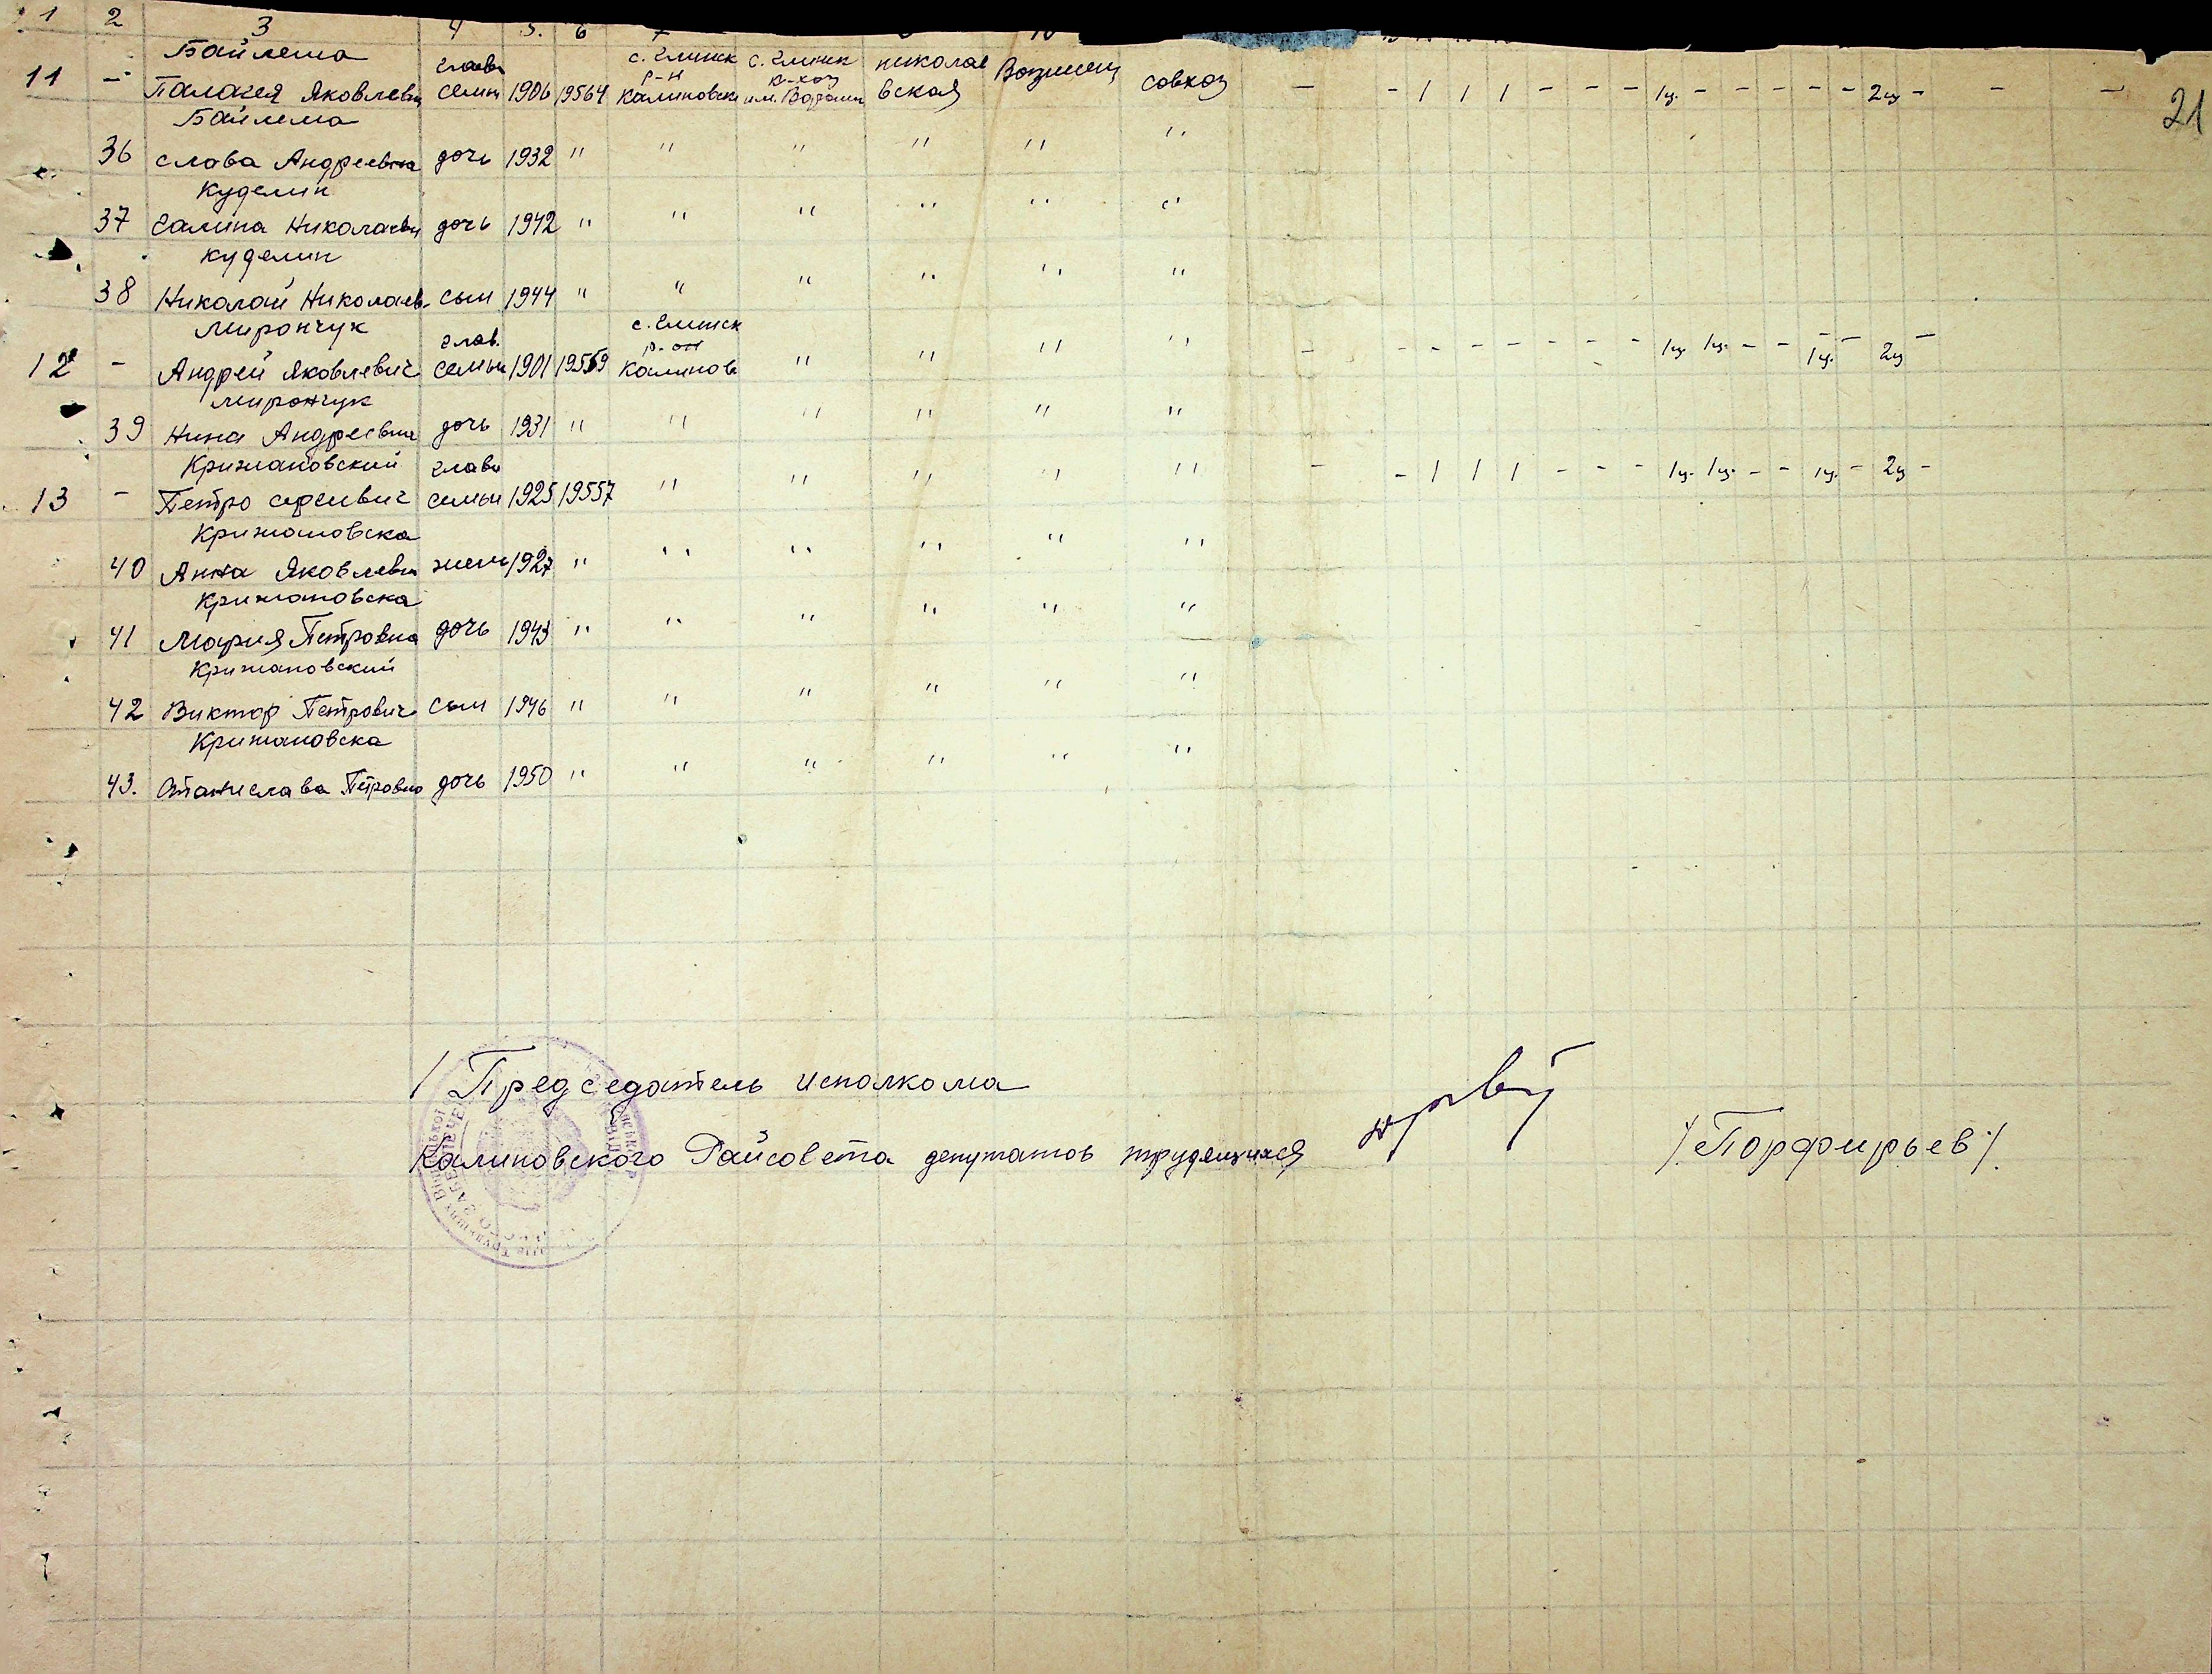 1 2 3 4 5. 6 10
Байлема глава с. Глинск с. Глинск николае
11 - Палагея Яковлевн семьи 1906 19564 р-н Калиновск к-хоз им. вская Вознесен совхоз - - 1 1 1 - - - 1ц. - - - - - 2ц - - -
21
Байлема
36 слава Андреевна дочь 1932 " " " " " "
Куделин
37 Галина Николаевн дочь 1942 " " " " " "
Куделин
38 Николай Николаев. сын 1944 " " " " " "
Мирончук глав. с. Глинск
12 - Андрей Яковлевич семьи 1901 19559 р-он Калинов " " " " - - - - - - - - 1ц. 1ц. - - - 1ц. - 2ц -
Мирончук
39 Нина Андреевна дочь 1931 " " " " " "
Крижановский глава
13 - Петро семьи 1925 19557 " " " " " - - 1 1 1 - - - 1ц. 1ц. - - 1ц. - 2ц -
Крижановска
40 Анна Яковлевн жена 1927 " " " " " "
Крижановска
41 Мария Петровна дочь 1943 " " " " " "
Крижановский
42 Виктор Петрович сын 1946 " " " " " "
Крижановска
43. Станислава Петровна дочь 1950 " " " " " "
/ Председатель исполкома
Калиновского Райсовета депутатов трудящихся /Порфирьев/.